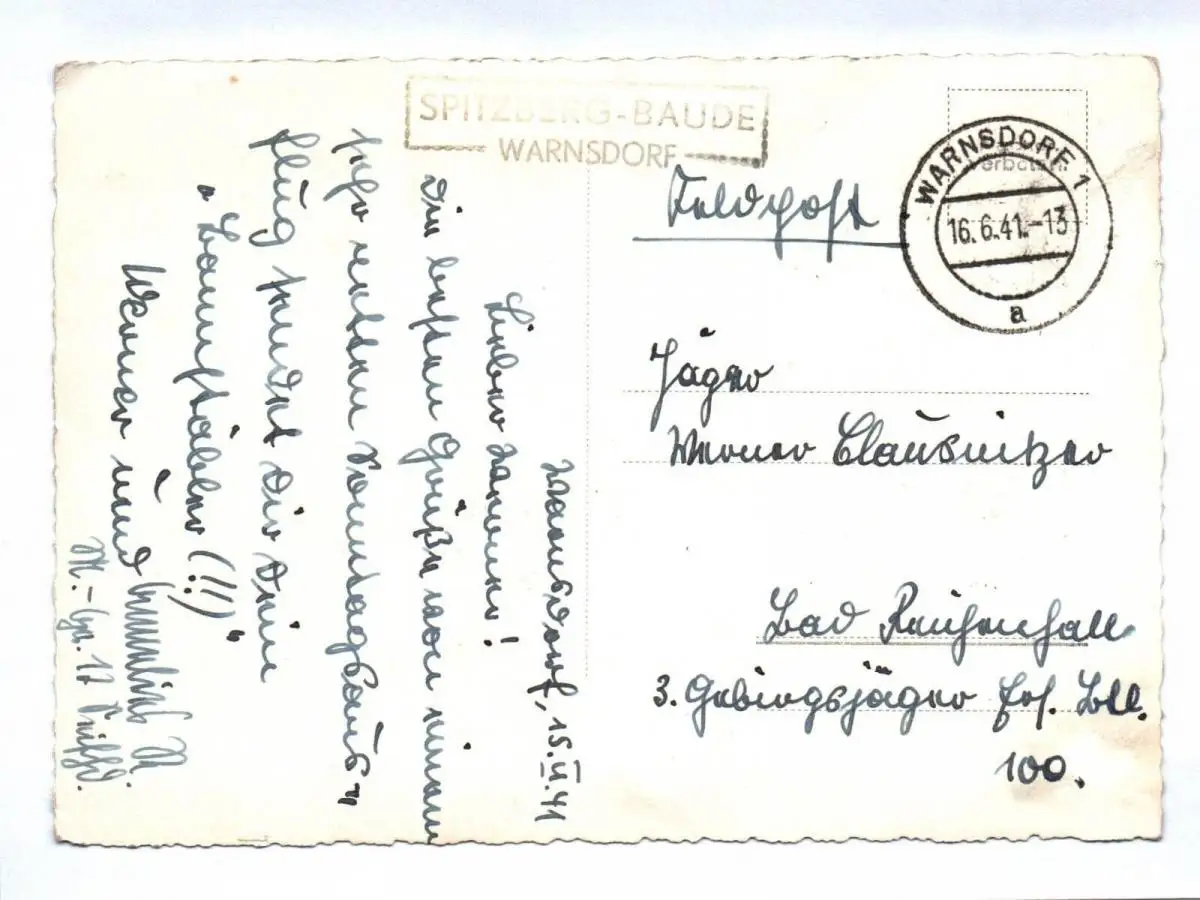 SPITZBERG-BAUDE
WARNSDORF
WARNSDORF 1
16.6.41.-13
a
Feldpost
Jäger
Werner Clausnitzer
Bad Reichenhall
3. Gebirgsjäger Ers. Btl.
100.
Warnsdorf, 15.VI.41
Lieber Werner!
Die besten Grüße von einem
sehr netten Sonntagsaus-
flug sendet dir dein
Werner und